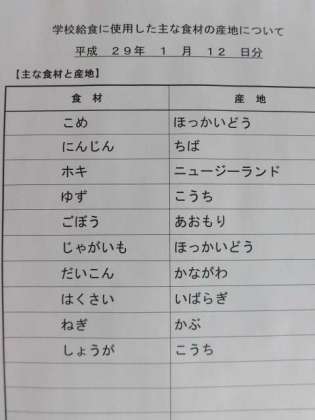 学校給食に使用した主な食材の産地について
平成 29年 1 月 12 日分
【主な食材と産地】
食 材 産 地
こめ ほっかいどう
にんじん ちば
ホキ ニュージーランド
ゆず こうち
ごぼう あおもり
じゃがいも ほっかいどう
だいこん かながわ
はくさい いばらぎ
ねぎ かぶ
しょうが こうち